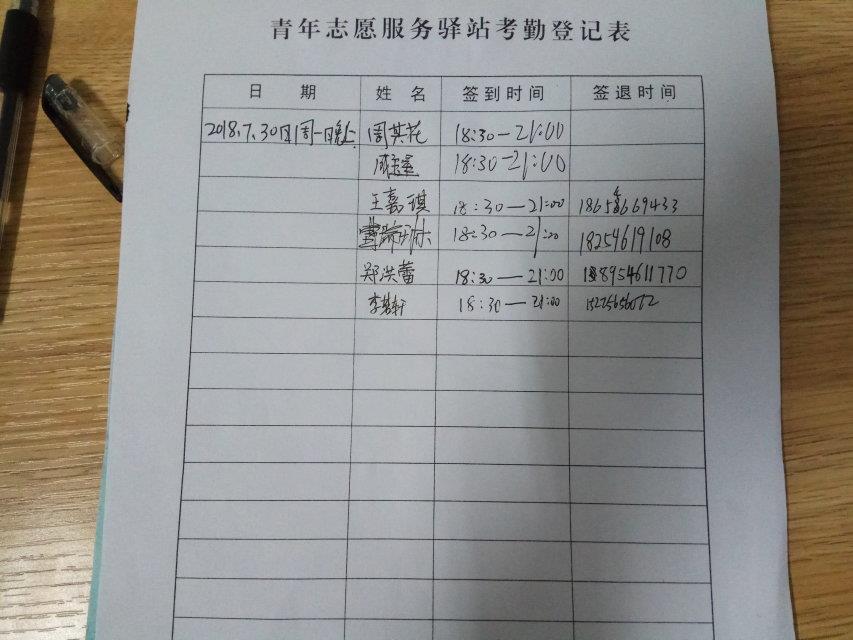 青年志愿服务驿站考勤登记表
日期 姓名 签到时间 签退时间
2018.7.30日周一晚上 周其花 18:30-21:00
18:30-21:00
王嘉琪 18:30-21:00
18:30-21:00 18254619108
郑洪蕾 18:30-21:00 18954611770
李若轩 18:30-21:00